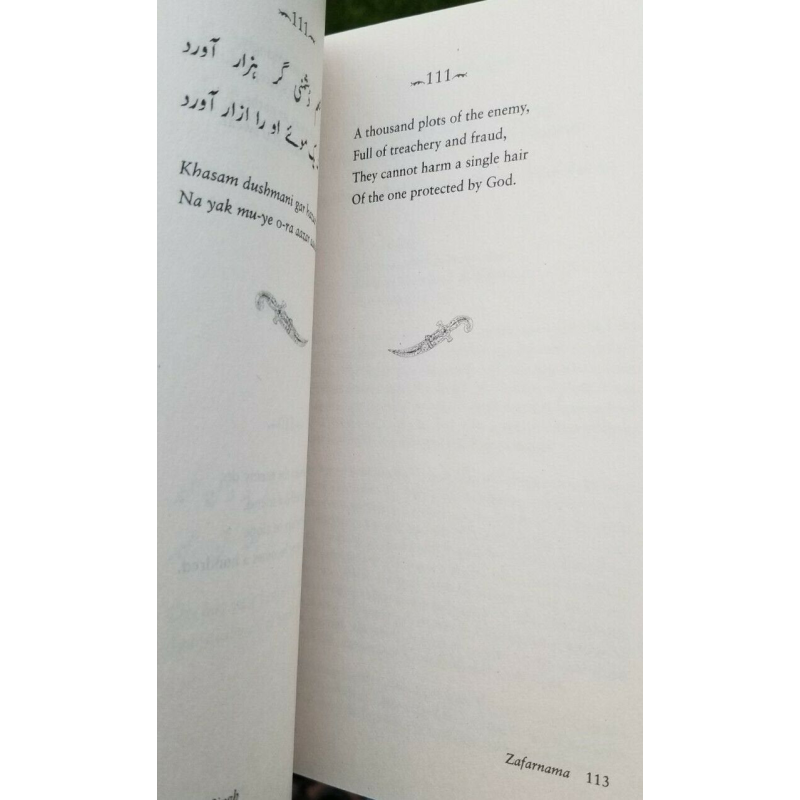 111
گر ہزار آورد
او را ازار آورد
Khasam dushmani gar
Na yak mu-ye o-ra aazar
111
A thousand plots of the enemy,
Full of treachery and fraud,
They cannot harm a single hair
Of the one protected by God.
Zafarnama 113